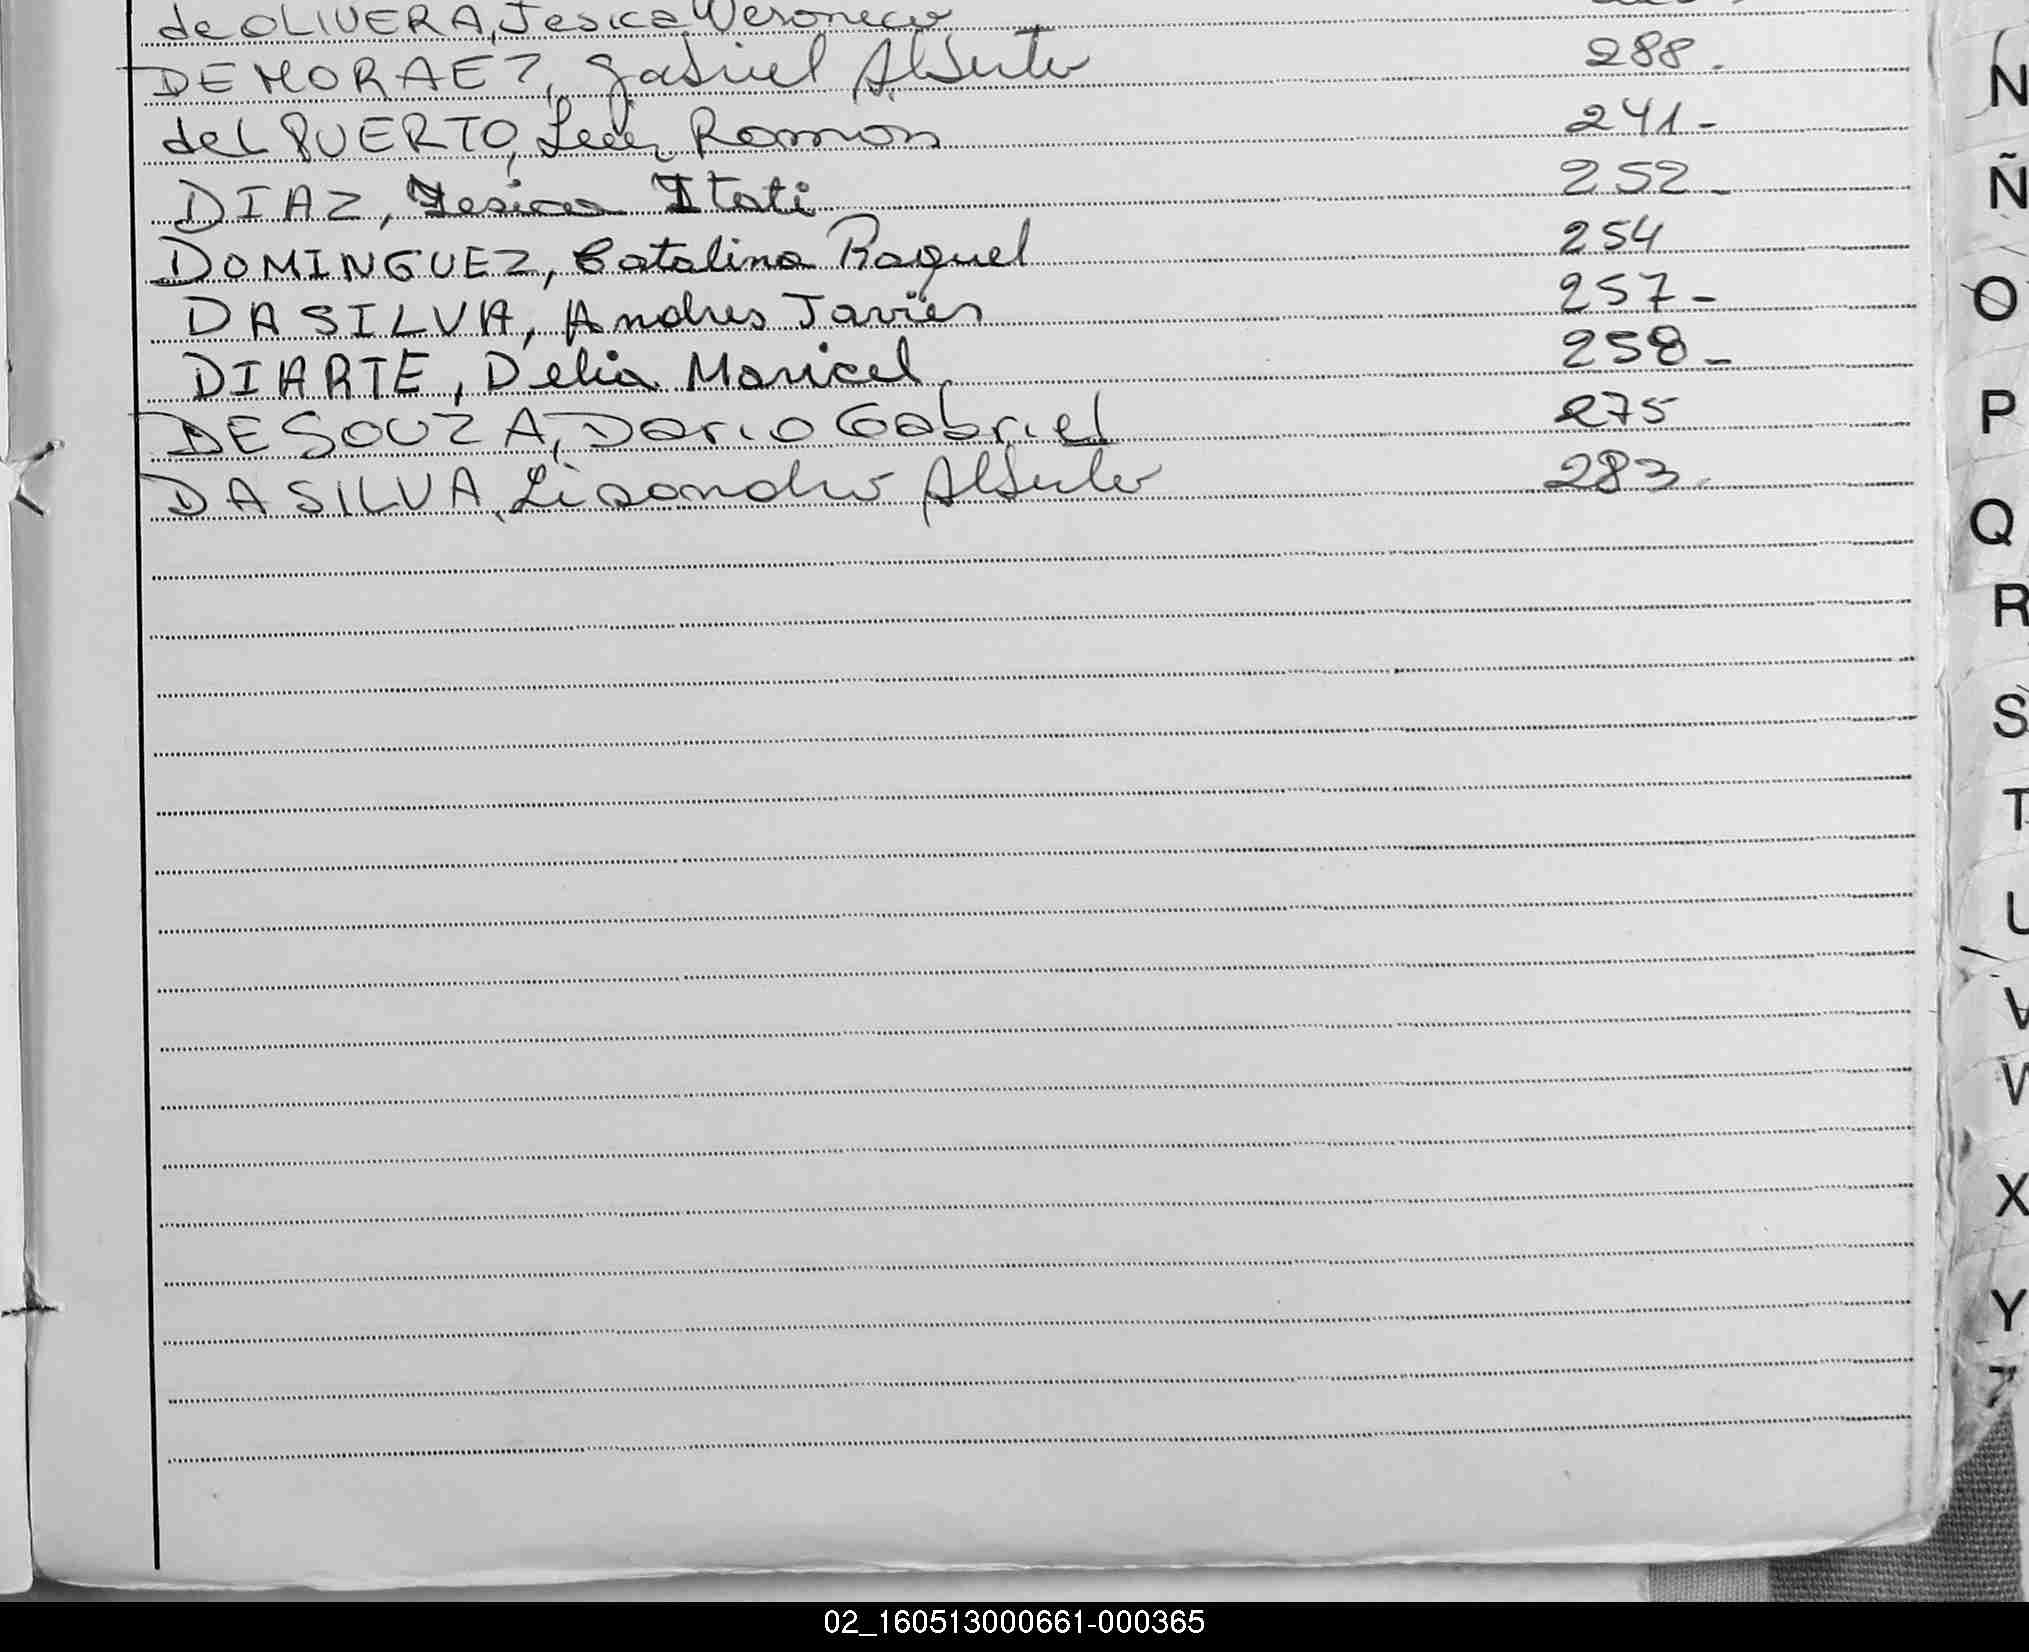 de OLIVERA, Jesica Veronica
DE MORAEZ, Gabriel Alberto 288.
del PUERTO, Ramon 241-
DIAZ, Yesica Itati 252-
DOMINGUEZ, Catalina Raquel 254
DA SILVA, Andres Javier 257-
DIARTE, Delia Maricel 258-
DE SOUZA, Dario Gabriel 275
DA SILVA, Lisandro Alberto 283.
N
Ñ
O
P
Q
R
S
T
U
V
W
X
Y
Z
02_160513000661-000365